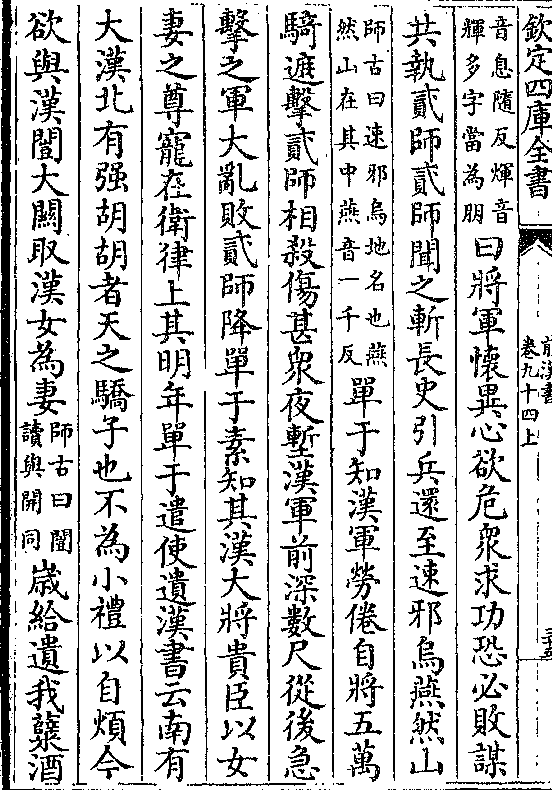 欽定四庫全書
前漢書
卷九十四上
三五
音息隨反煇音
輝多字當為朋
曰將軍懷異心欲危衆求功恐必敗謀
共執貳師貳師聞之斬長史引兵還至速邪烏燕然山
師古曰速邪烏地名也燕
然山在其中燕音一千反
單于知漢軍勞倦自將五萬
騎遮擊貳師相殺傷甚衆夜塹漢軍前深數尺從後急
擊之軍大亂敗貳師降單于素知其漢大將貴臣以女
妻之尊寵在衛律上其明年單于遣使遺漢書云南有
大漢北有强胡胡者天之驕子也不為小禮以自煩今
欲與漢闓大關取漢女為妻
師古曰闓
讀與開同
嵗給遺我糵酒